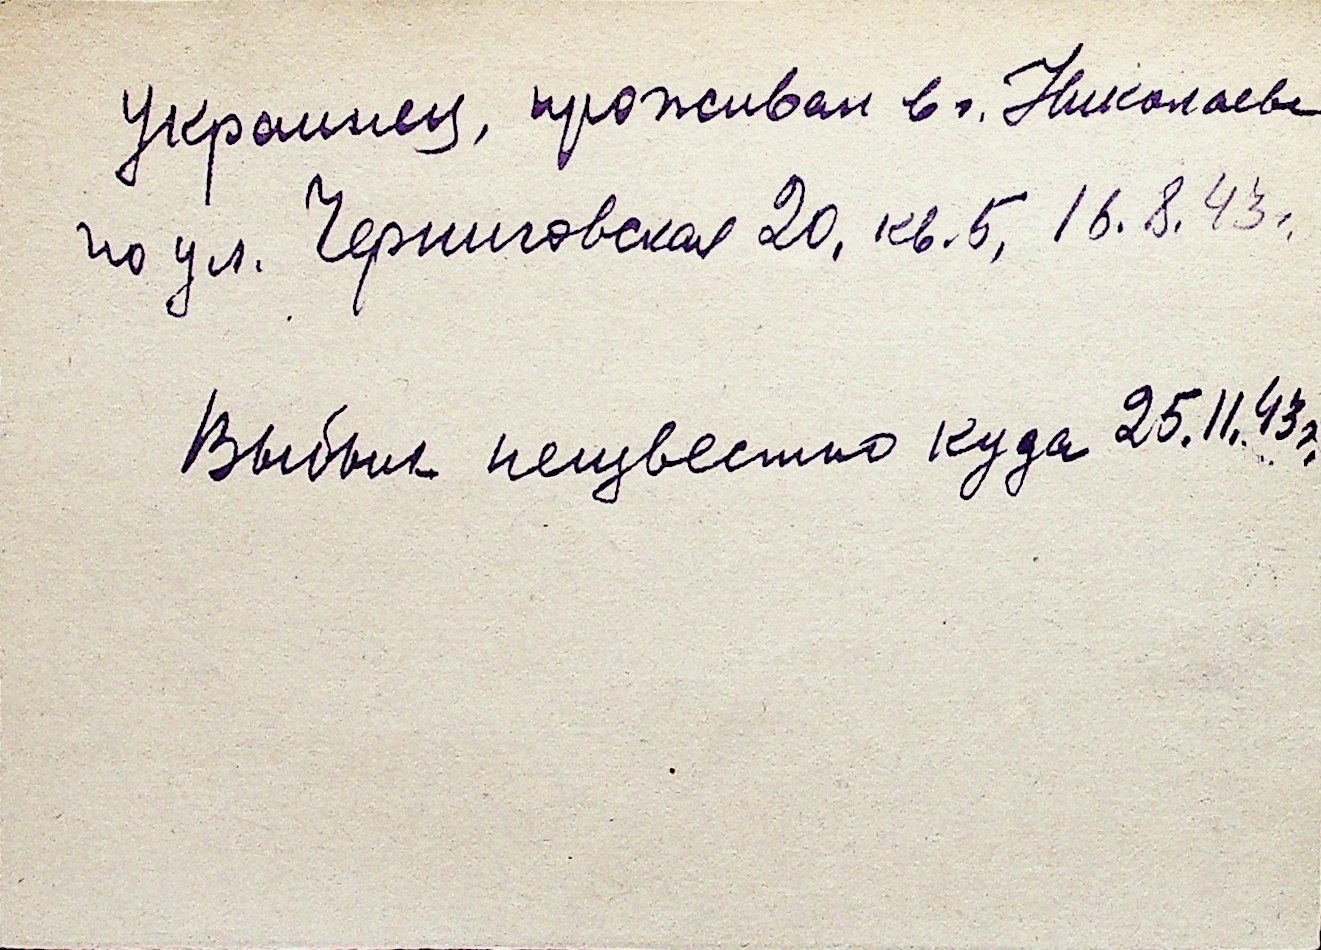 Украинец, проживал в г. Николаеве
по ул. Черниговская 20, кв. 5, 16.8.43г.
Выбыл неизвестно куда 25.11.43г.